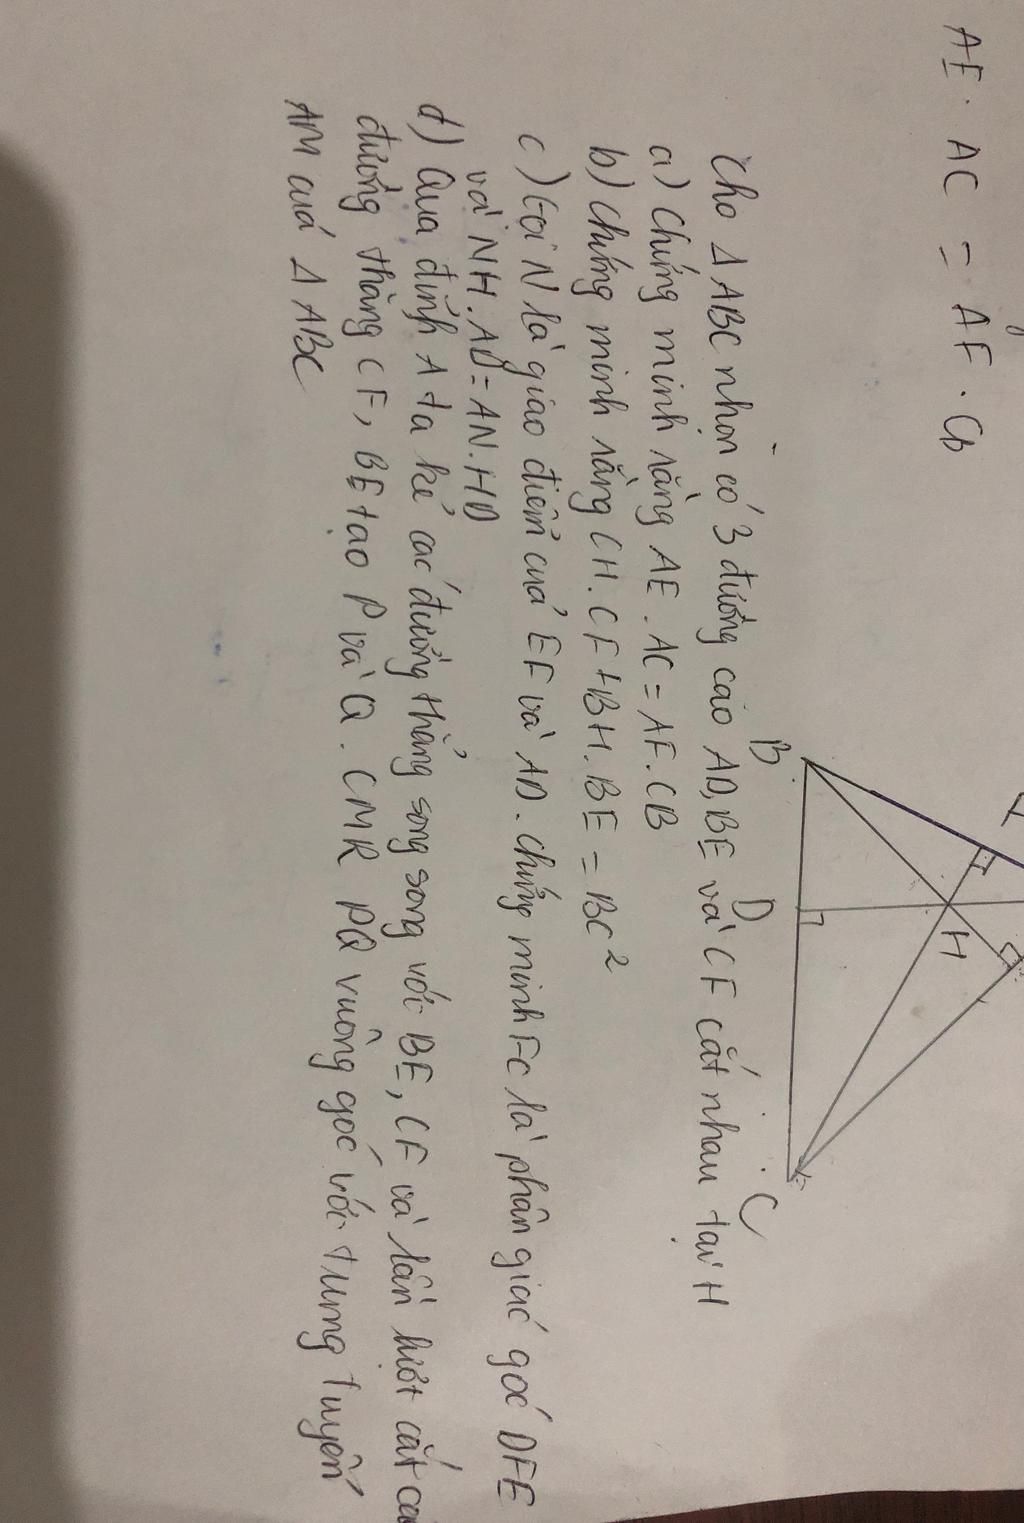 AE. AC = AF. CB
B
D
H
C
Cho Δ ABC nhọn có 3 đường cao AD, BE và CF cắt nhau tại H
a) Chứng minh rằng AE. AC = AF. CB
b) Chứng minh rằng CH. CF + BH. BE = BC²
c) Gọi N là giao điểm của EF và AD. chứng minh FC là phân giác góc DFE
và NH. AD = AN. HD
d) Qua đỉnh A ta kẻ các đường thẳng song song với BE, CF và lần lượt cắt các
đường thẳng CF, BE tạo P và Q. CMR PQ vuông góc với trung tuyến
AM của Δ ABC